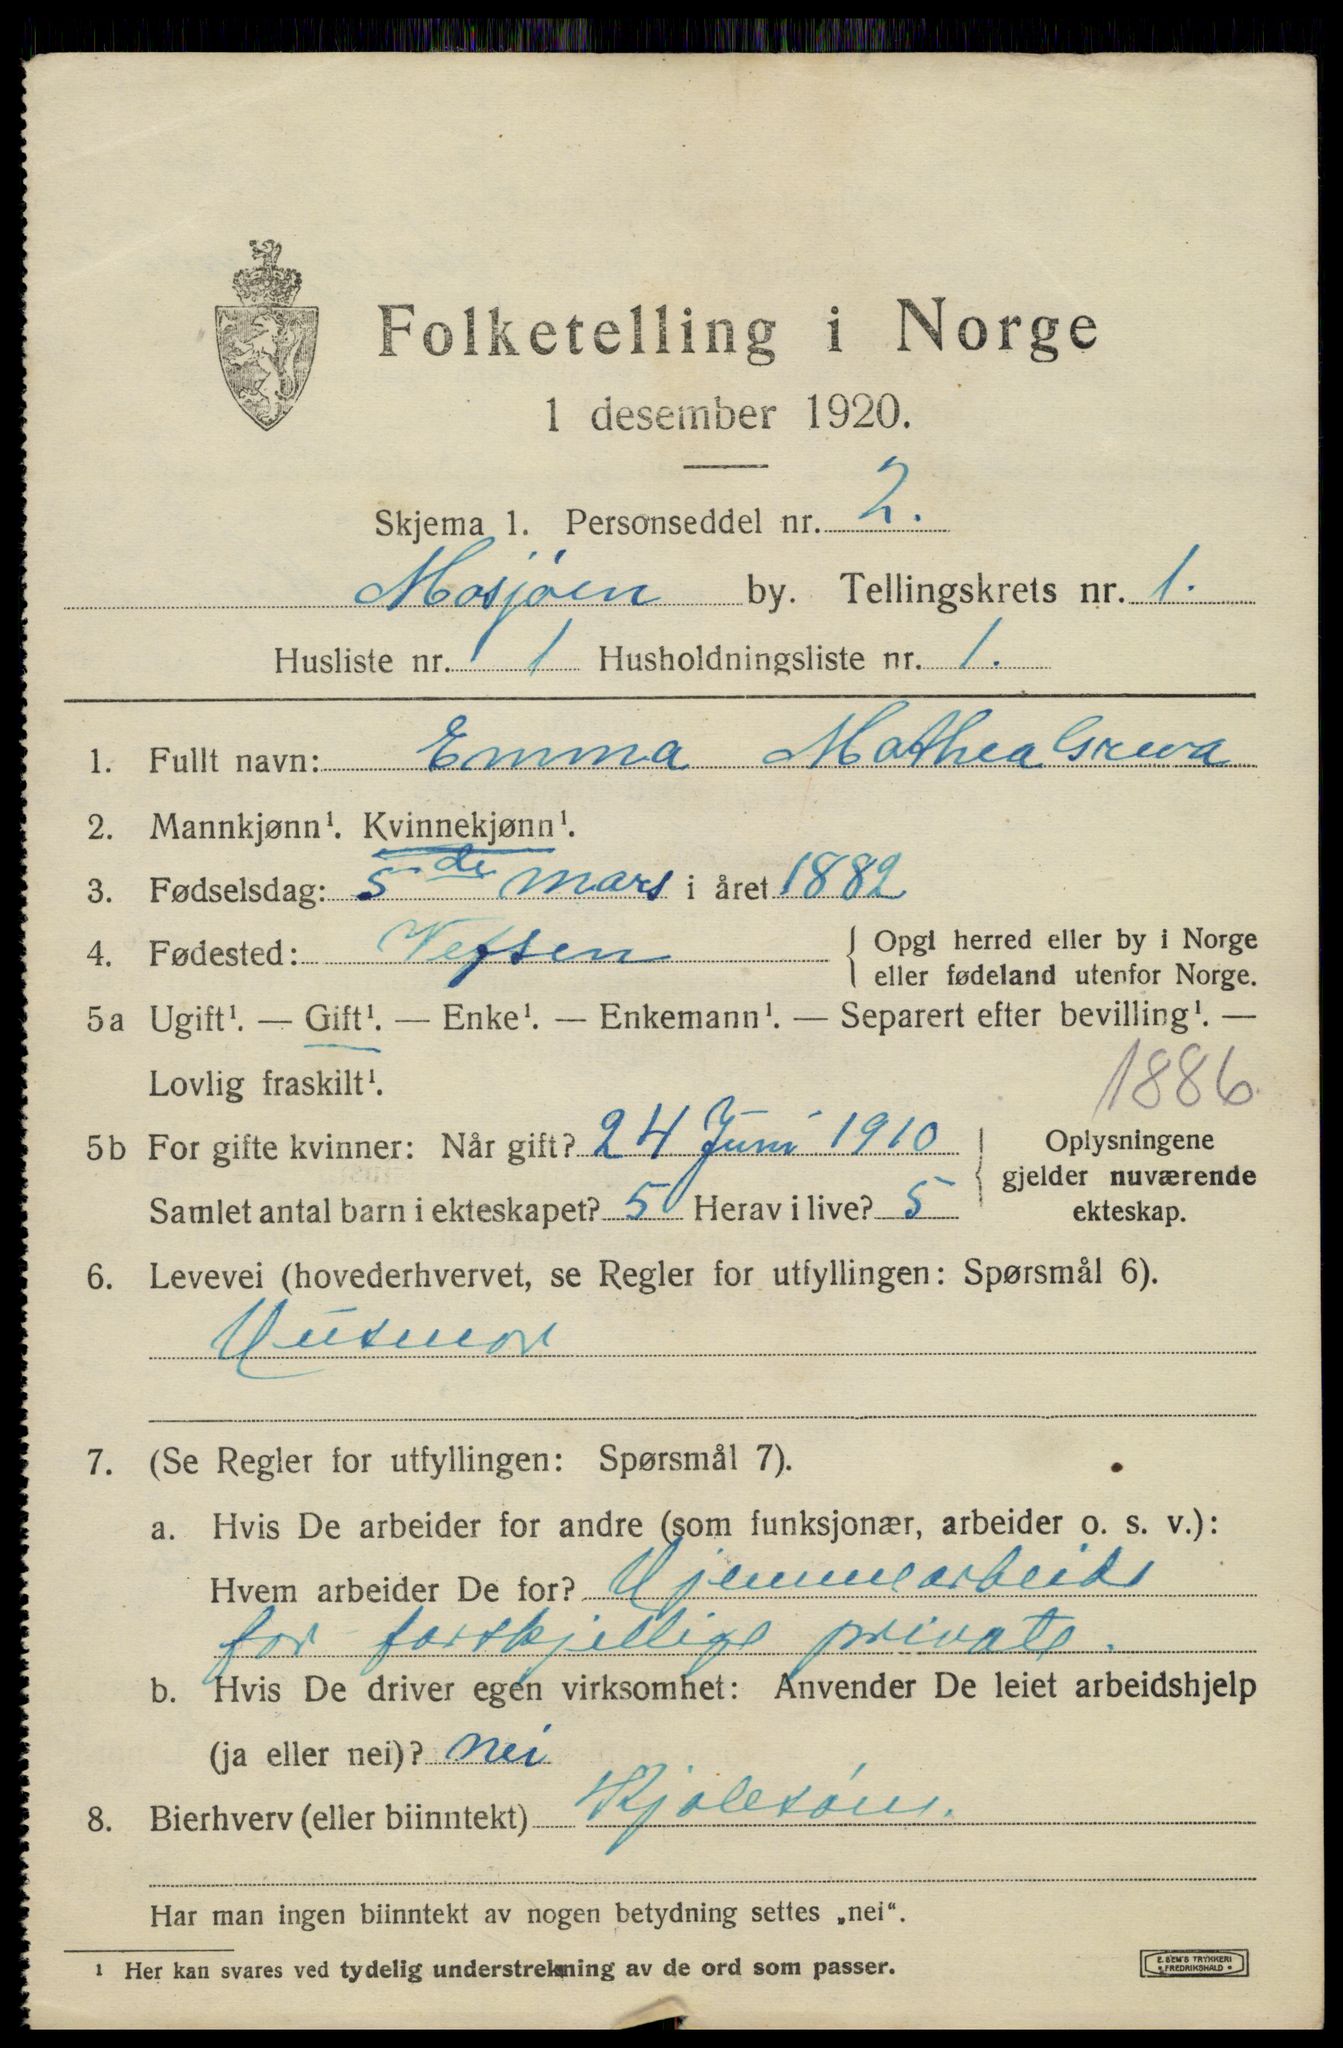 Folketelling i Norge
1 desember 1920.
Skjema 1. Personseddel nr. 2.
Mosjøen by. Tellingskrets nr. 1.
Husliste nr. 1 Husholdningsliste nr. 1.
1. Fullt navn: Emma Mathea Greva
2. Mannkjønn¹. Kvinnekjønn¹.
3. Fødselsdag: 5 de mars i året 1882
4. Fødested: Vefsen { Opgi herred eller by i Norge
eller fødeland utenfor Norge.
5a Ugift¹. — Gift¹. — Enke¹. — Enkemann¹. — Separert efter bevilling¹. —
Lovlig fraskilt¹. 1886
5b For gifte kvinner: Når gift? 24 Juni 1910 { Oplysningene
gjelder nuværende
Samlet antal barn i ekteskapet? 5 Herav i live? 5 ekteskap.
6. Levevei (hovederhvervet, se Regler for utfyllingen: Spørsmål 6).
Husmor
7. (Se Regler for utfyllingen: Spørsmål 7).
a. Hvis De arbeider for andre (som funksjonær, arbeider o. s. v.):
Hvem arbeider De for? Hjemmearbeide
for forskjellige private.
b. Hvis De driver egen virksomhet: Anvender De leiet arbeidshjelp
(ja eller nei)? nei
8. Bierhverv (eller biinntekt) Kjolesøm.
Har man ingen biinntekt av nogen betydning settes „nei“.
¹ Her kan svares ved tydelig understrekning av de ord som passer.
E. SEM'S TRYKKERI
FREDRIKSHALD